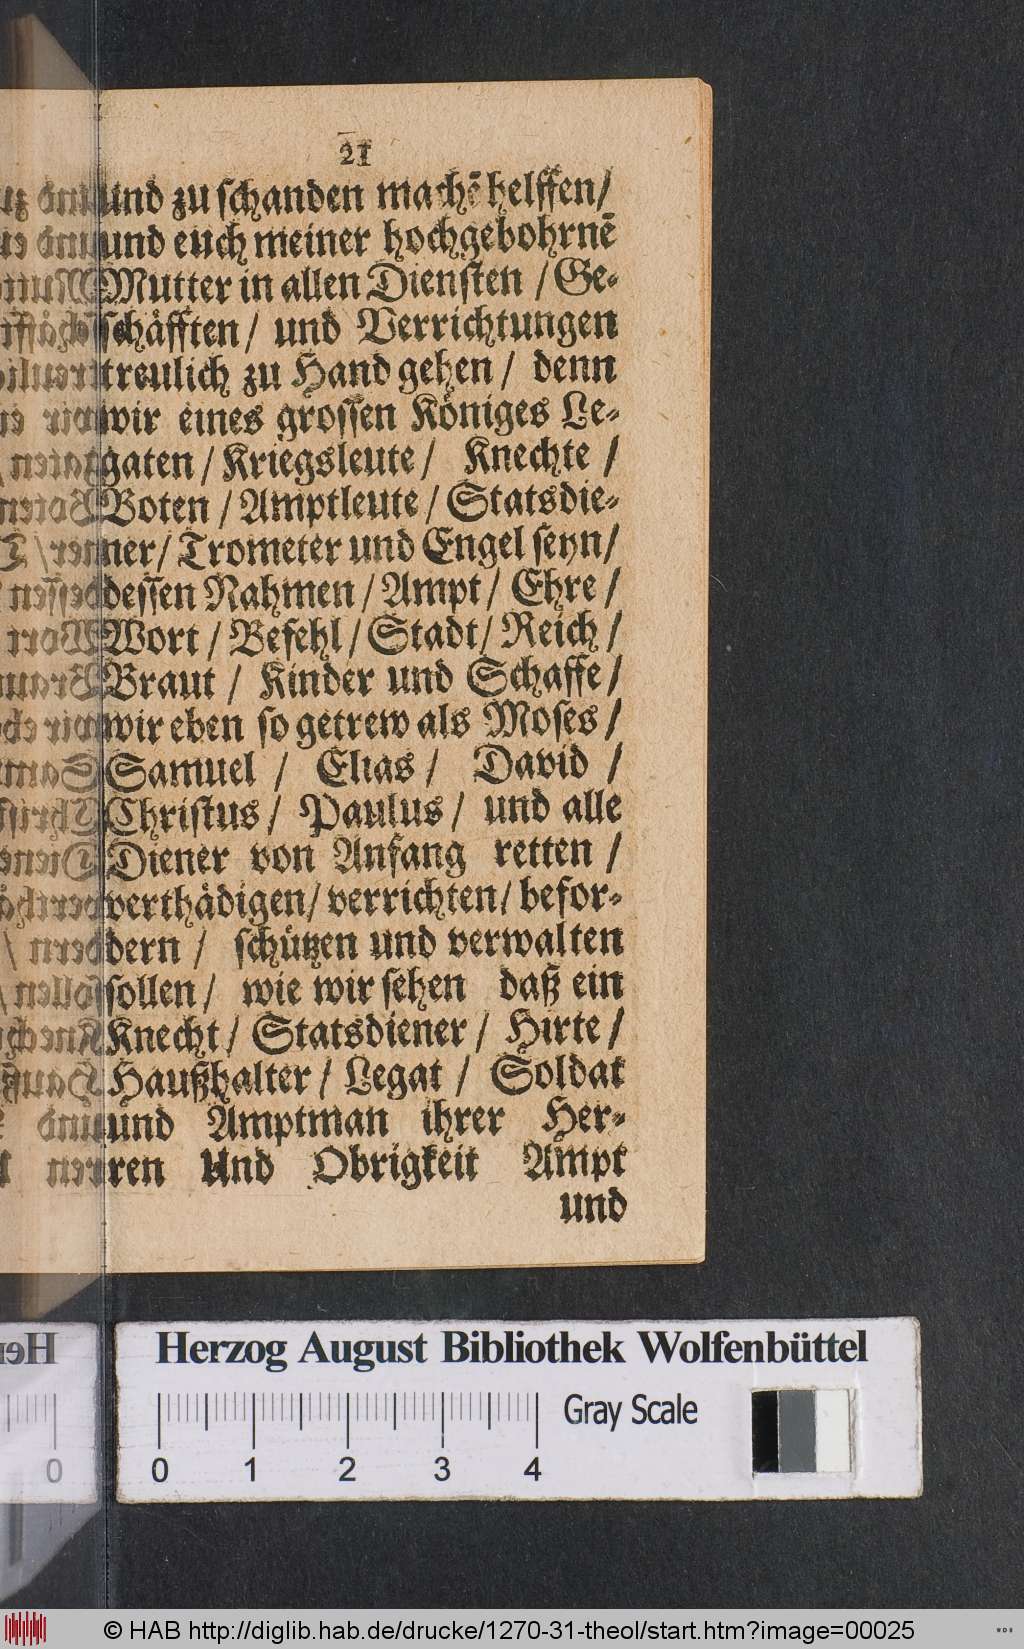 21
und zu schanden machē helffen/
und euch meiner hochgebohrnē
Mutter in allen Diensten / Ge-
schäfften / und Verrichtungen
treulich zu Hand gehen / denn
wir eines grossen Königes Le-
gaten / Kriegsleute / Knechte /
Boten / Amptleute / Statsdie-
ner / Trometer und Engel seyn/
dessen Nahmen / Ampt / Ehre /
Wort / Befehl / Stadt / Reich /
Braut / Kinder und Schaffe /
wir eben so getrew als Moses /
Samuel / Elias / David /
Christus / Paulus / und alle
Diener von Anfang retten /
verthädigen / verrichten / befor-
dern / schützen und verwalten
sollen / wie wir sehen daß ein
Knecht / Statsdiener / Hirte /
Haußhalter / Legat / Soldat
und Amptman ihrer Her-
ren Und Obrigkeit Ampt
und
Herzog August Bibliothek Wolfenbüttel
Gray Scale
0 1 2 3 4
© HAB http://diglib.hab.de/drucke/1270-31-theol/start.htm?image=00025